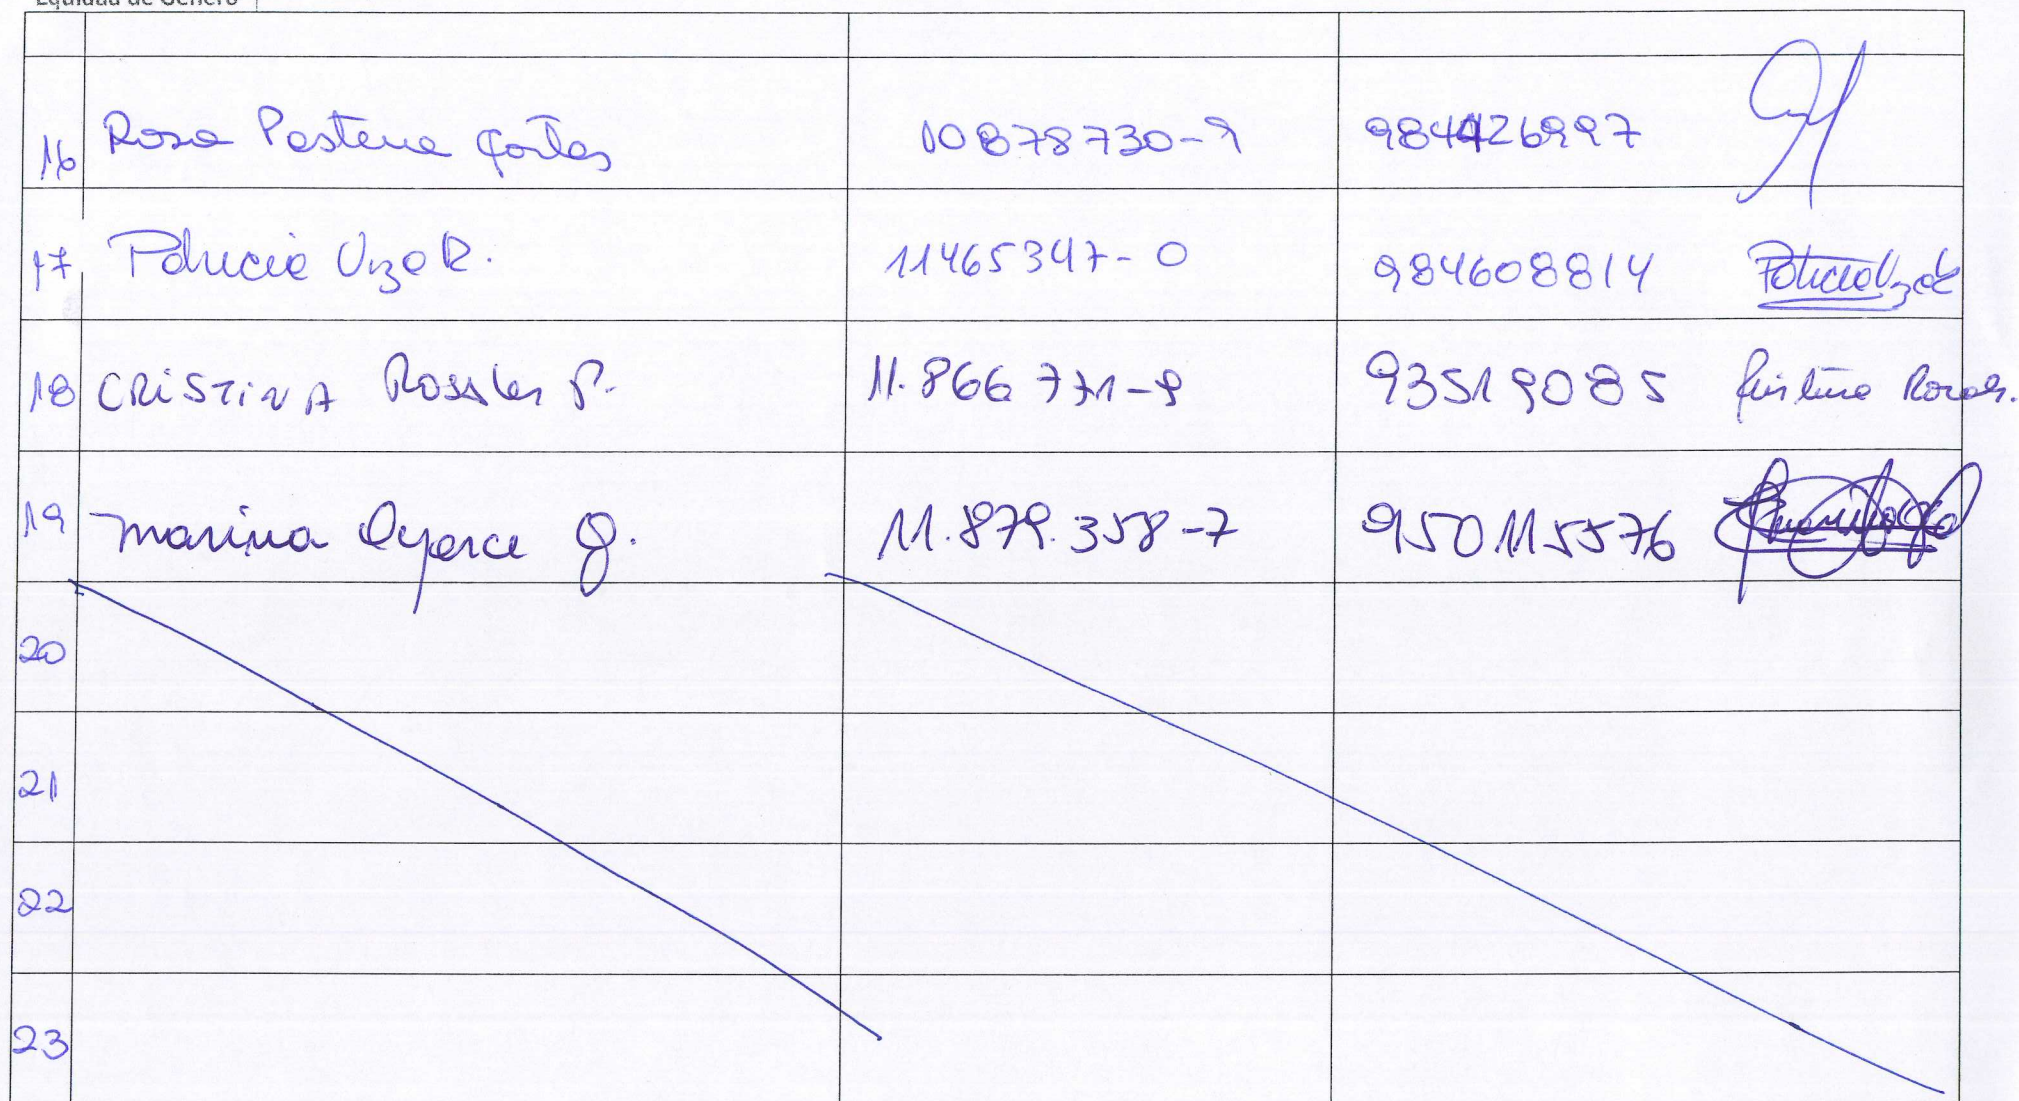 Equidad de Género
16 Rosa Pastene Cortes 10878730-9 984426997
17 Patricia Uzga R. 11465347-0 984608814 Patricia Uzga R
18 CRISTINA Rosales P. 11.866 771-9 935190085 Cristina Rosales.
19 Marina Oyarce G. 11.879.358-7 950115576
20
21
22
23